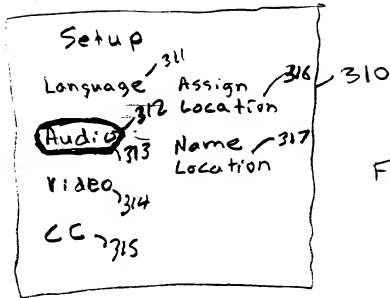 Setup
Language 311
Assign Location 316
310
Audio 312
313
Name Location 317
Video 314
CC 315
F